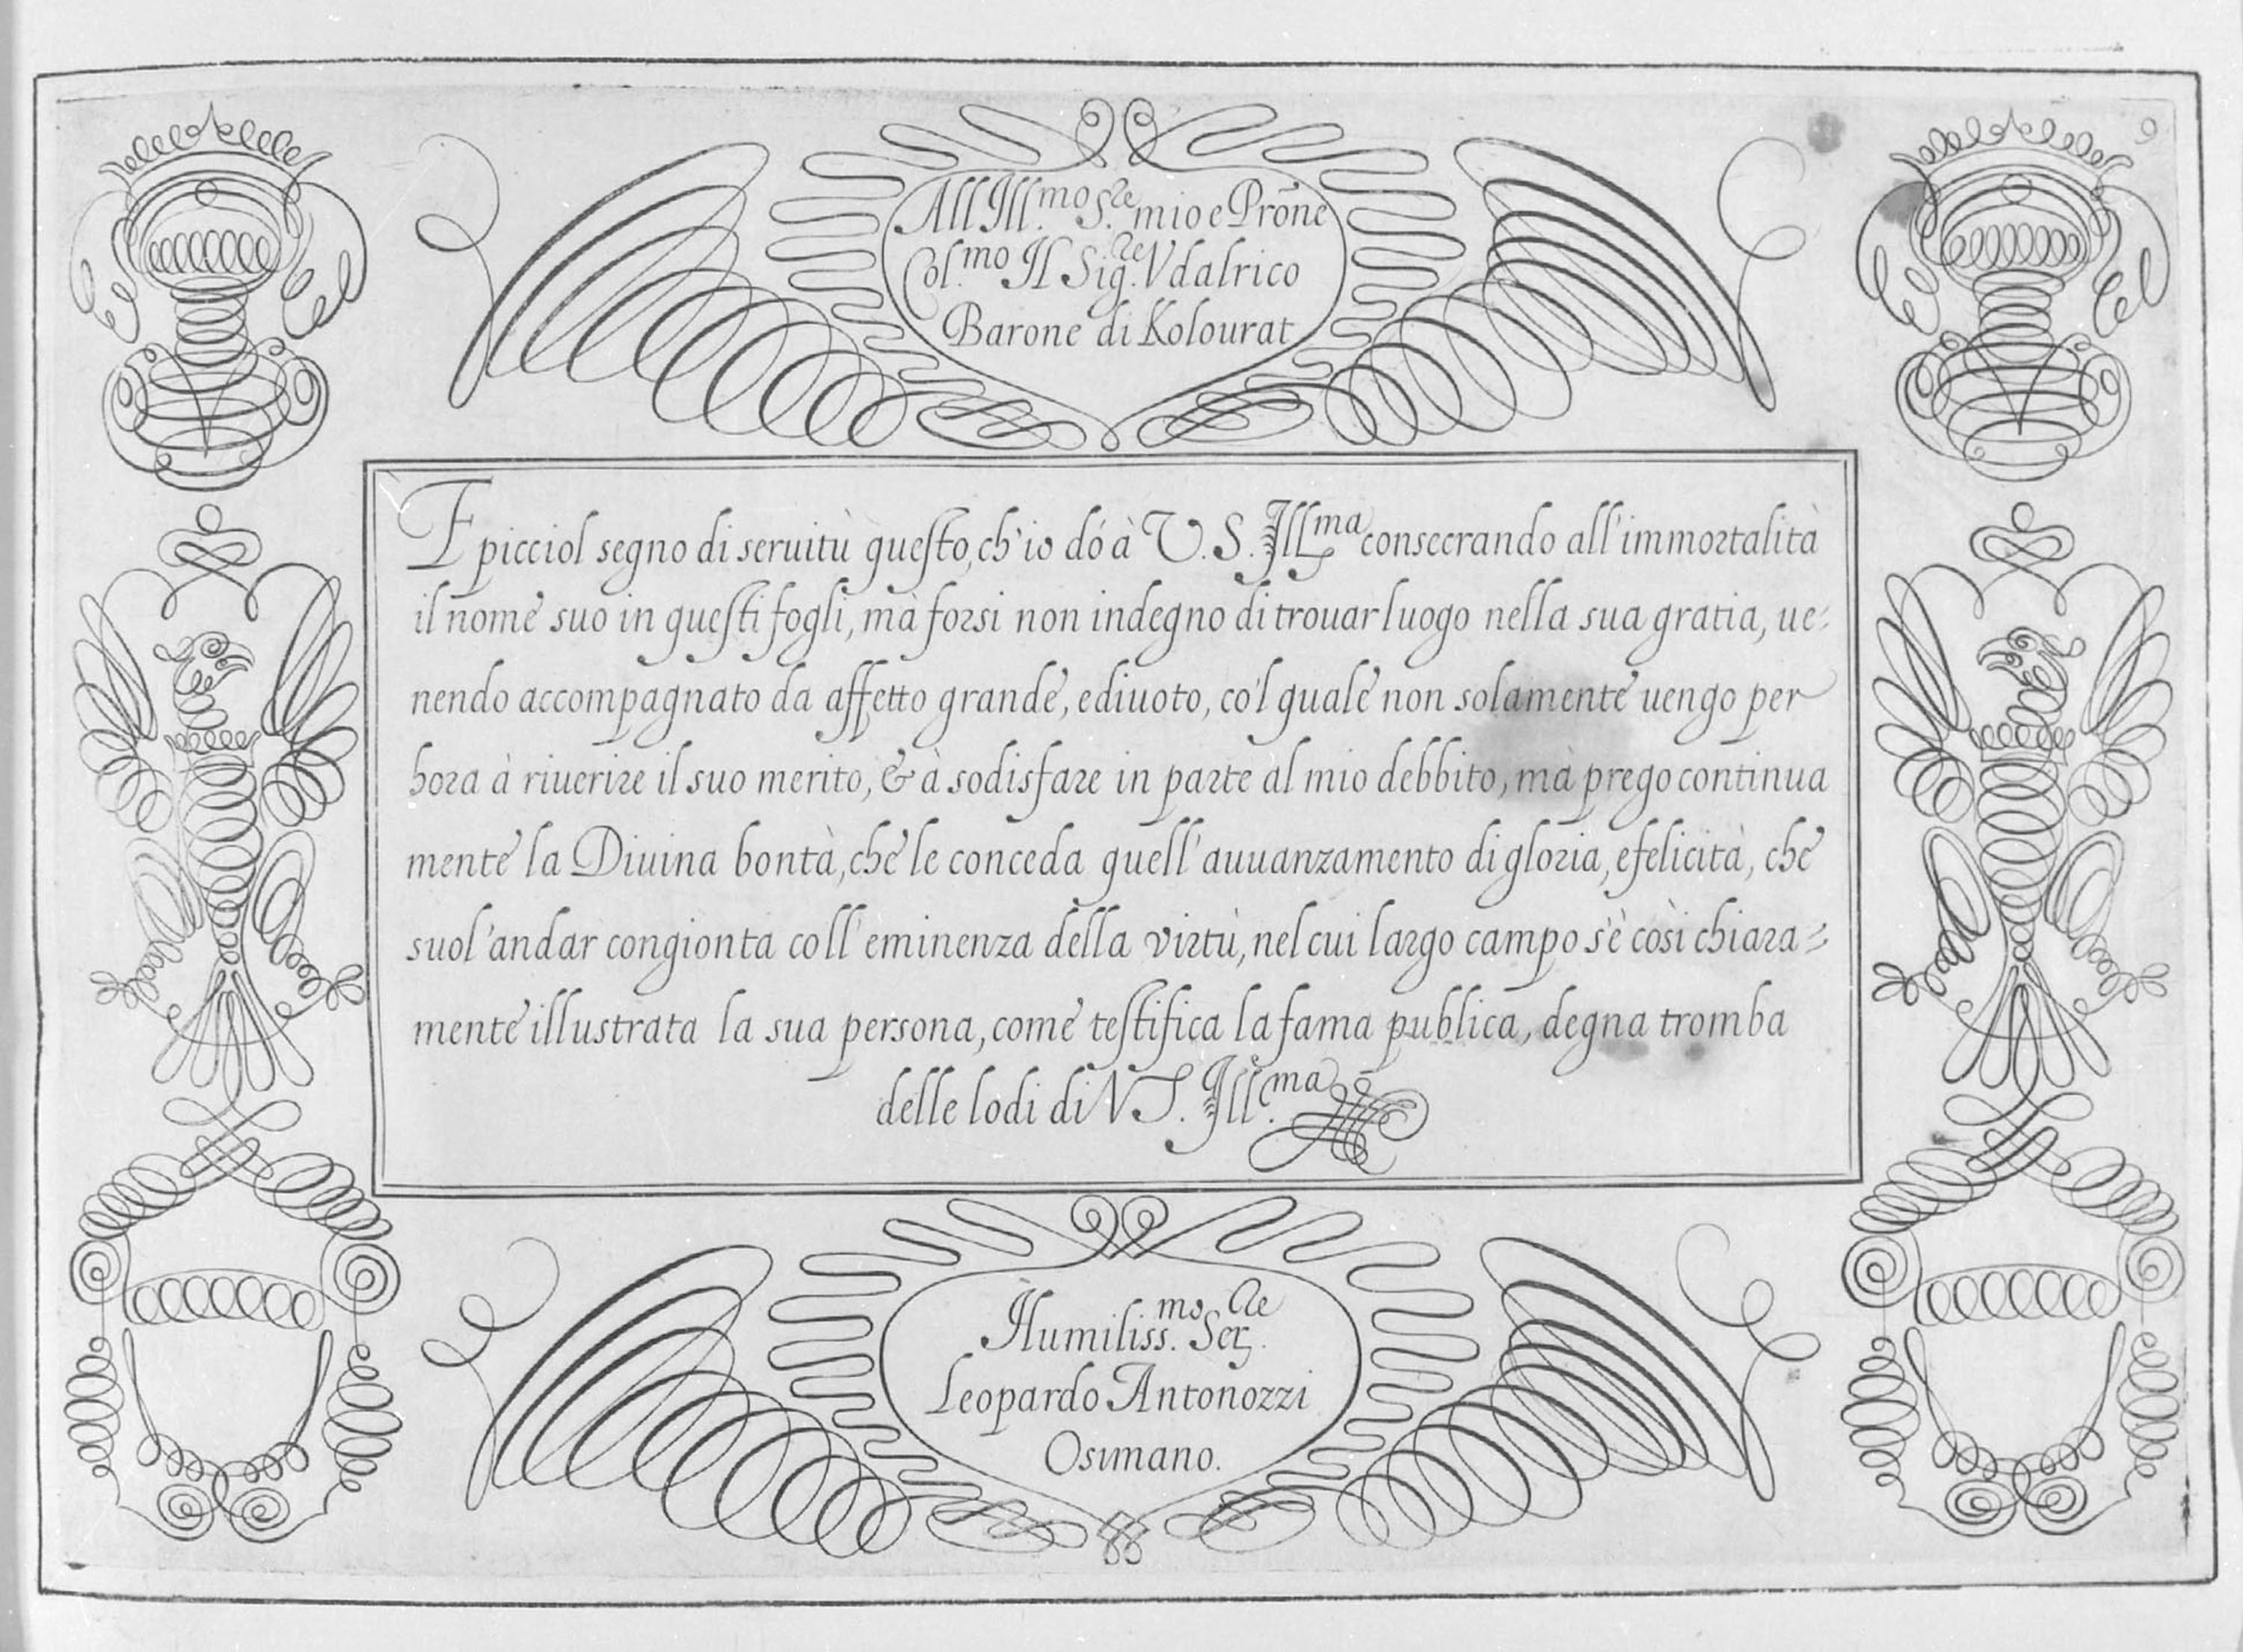 9
All Ill.mo S.re mio e Prōne
Col.mo Il Sig.re Vdalrico
Barone di Kolourat
E picciol segno di seruitù questo, ch'io dó à V. S. Ill.ma consecrando all'immortalità
il nome suo in questi fogli, mà forsi non indegno di trouar luogo nella sua gratia, ue-
nendo accompagnato da affetto grande, e diuoto, co'l quale non solamente uengo per
hora à riuerire il suo merito, & à sodisfare in parte al mio debbito, mà prego continua
mente la Diuina bontà, che le conceda quell'auuanzamento di gloria, e felicità, che
suol'andar congionta coll'eminenza della virtù, nel cui largo campo s'è così chiara-
mente illustrata la sua persona, come testifica la fama publica, degna tromba
delle lodi di V S. Ill.ma
Humiliss.mo Ser.re
Leopardo Antonozzi
Osimano.